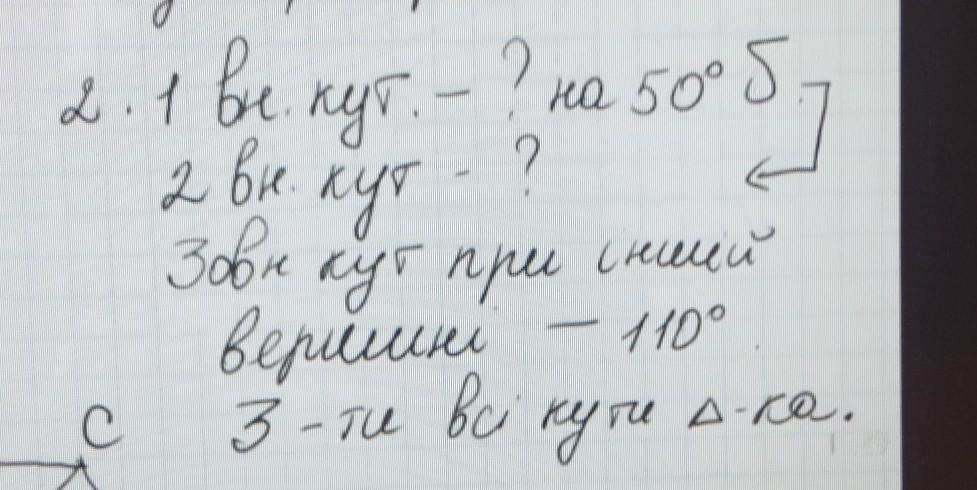 2. 1 вн. кут. – ? на 50° б.
2 вн. кут - ?
Зовн кут при іншій
вершині – 110°
З-ти всі кути Δ-ка.
C